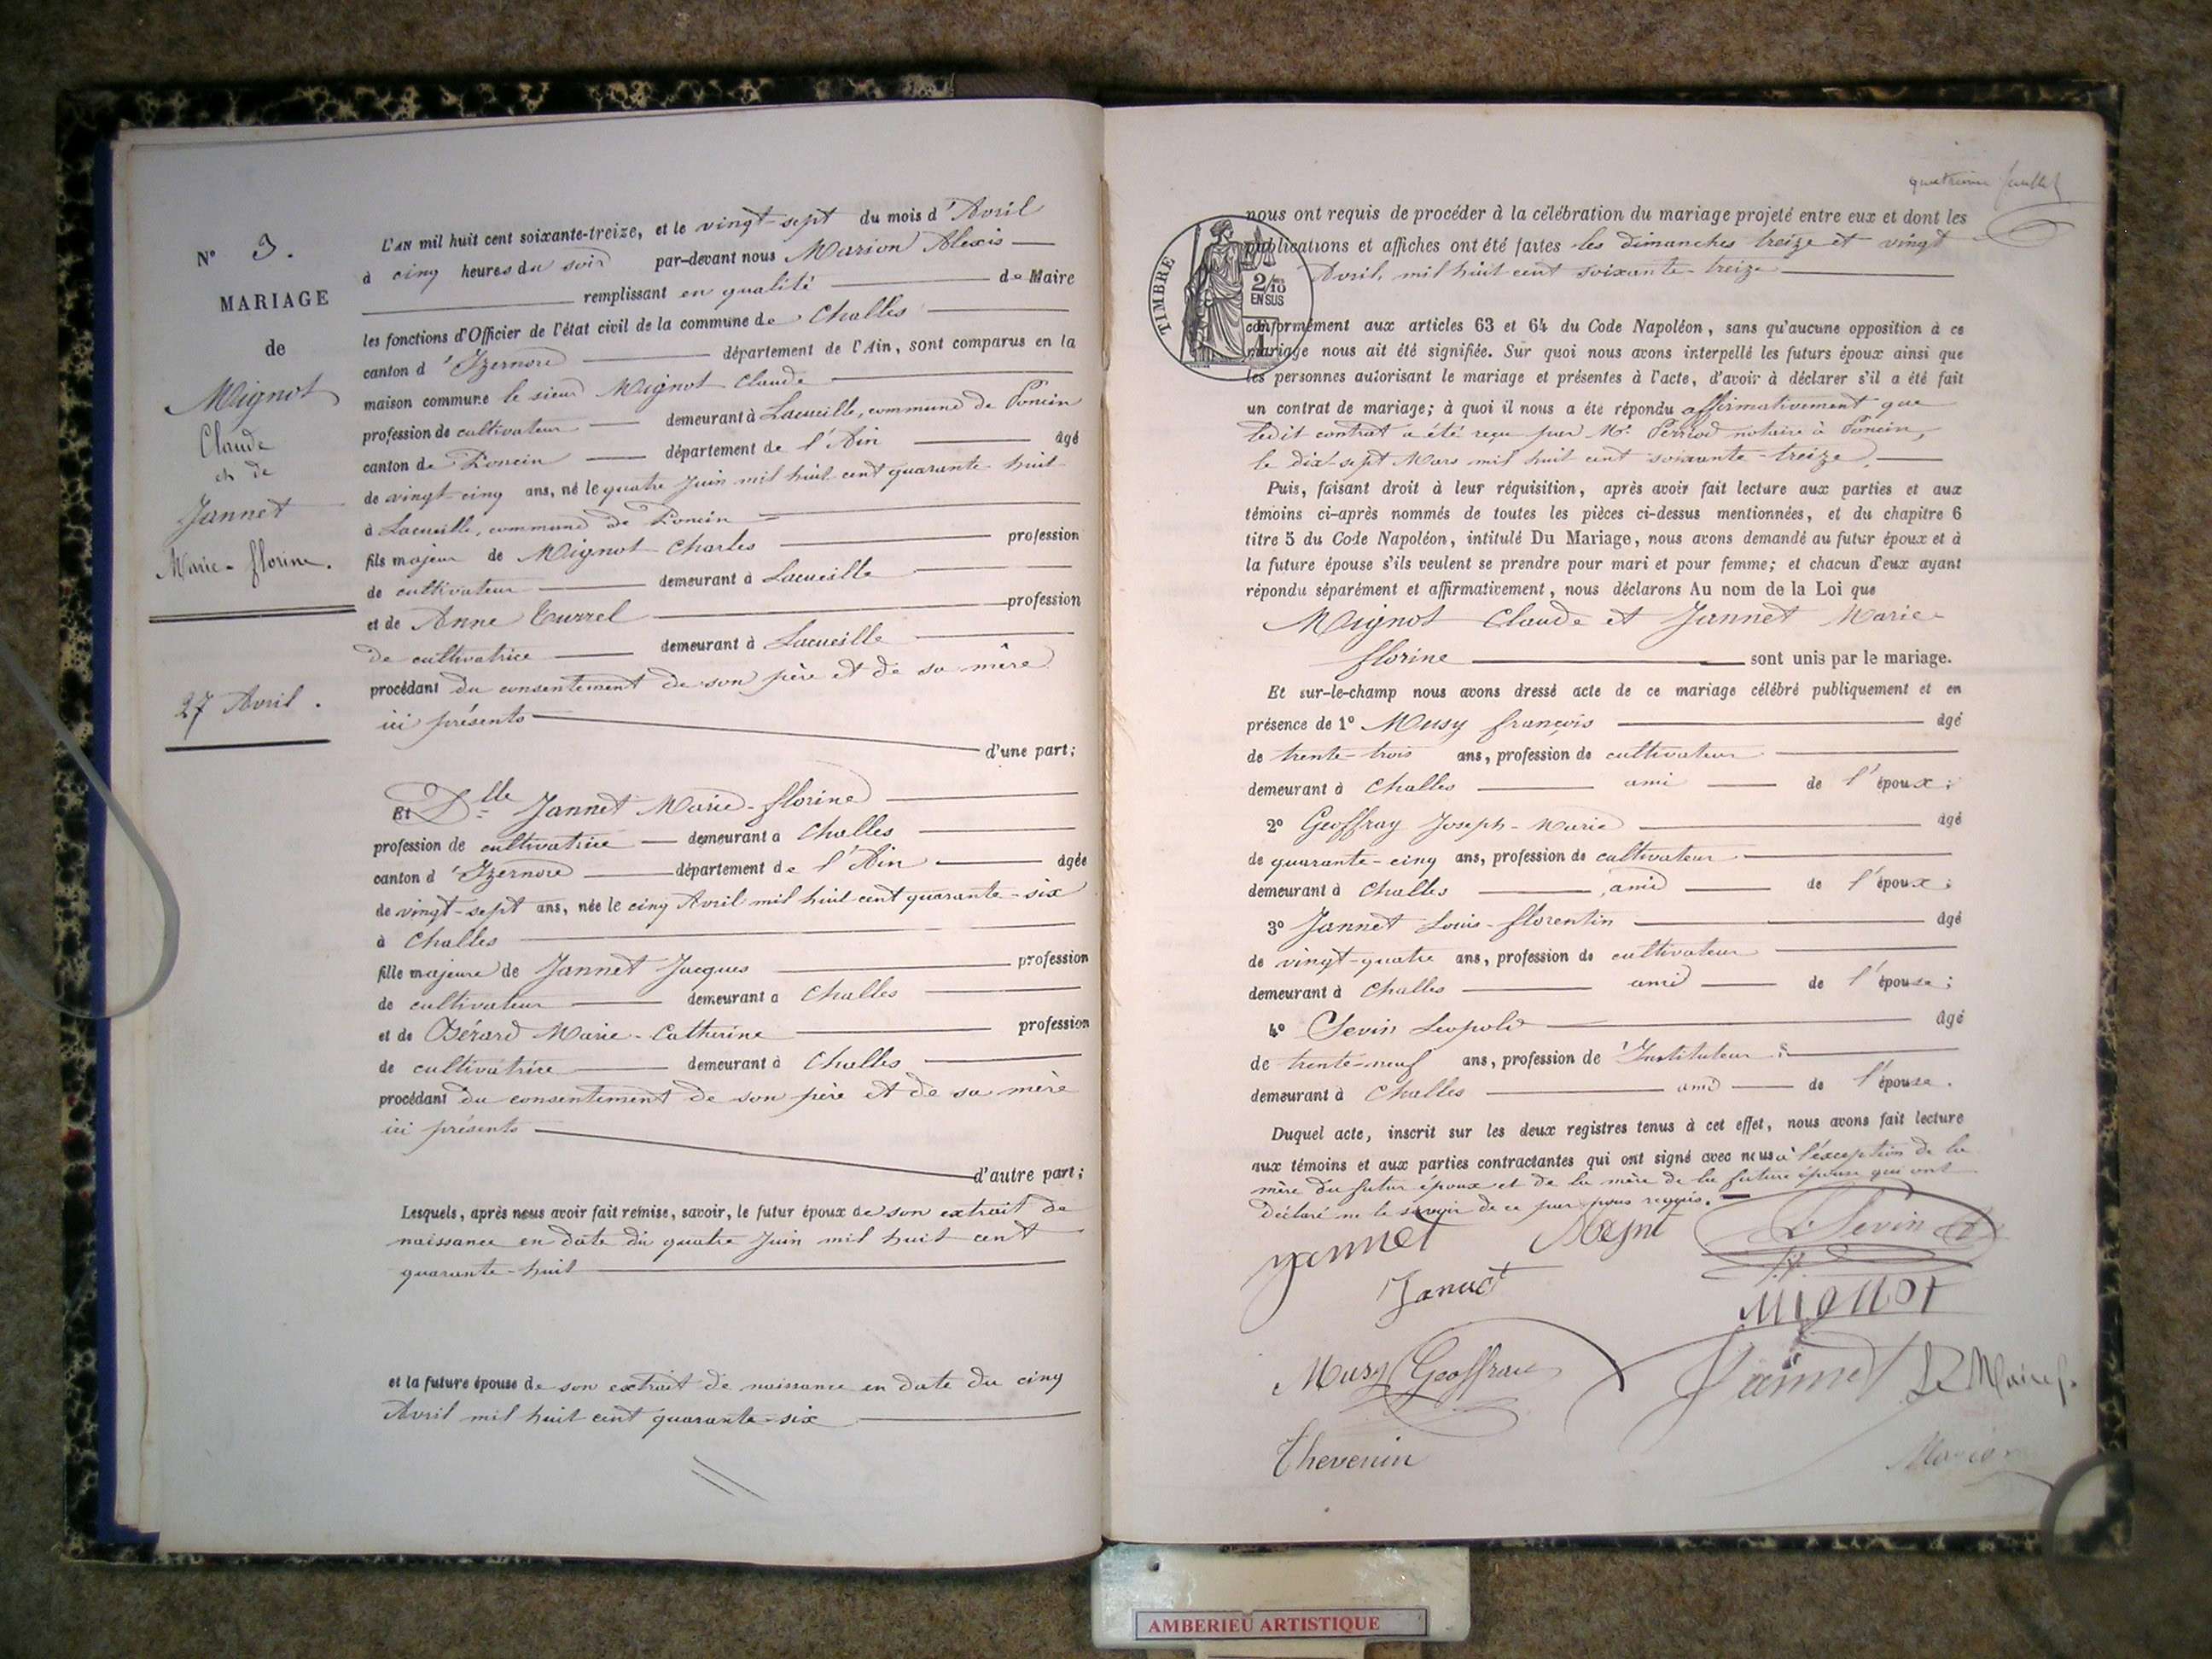 N° 3.
MARIAGE
de
Mignot
Claude
et de
Jannet
Marie-florine.
27 Avril.
L'AN mil huit cent soixante-treize, et le vingt-sept du mois d'Avril
à cinq heures du soir par-devant nous Marion Alexis
remplissant en qualité de Maire
les fonctions d'Officier de l'état civil de la commune de Challes
canton d'Izernore département de l'Ain, sont comparus en la
maison commune le sieur Mignot Claude
profession de cultivateur demeurant à Lacueille, commune de Poncin
canton de Poncin département de l'Ain âgé
de vingt-cinq ans, né le quatre Juin mil huit cent quarante-huit
à Lacueille, commune de Poncin
fils majeur de Mignot Charles profession
de cultivateur demeurant à Lacueille
et de Anne Turrel profession
de cultivatrice demeurant à Lacueille
procédant du consentement de son père et de sa mère
ici présents
d'une part;
Et Dlle Jannet Marie-florine
profession de cultivatrice demeurant a Challes
canton d'Izernore département de l'Ain âgée
de vingt-sept ans, née le cinq Avril mil huit cent quarante-six
à Challes
fille majeure de Jannet Jacques profession
de cultivateur demeurant a Challes
et de Bérard Marie-Catherine profession
de cultivatrice demeurant à Challes
procédant du consentement de son père et de sa mère
ici présents
d'autre part;
Lesquels, après nous avoir fait remise, savoir, le futur époux de son extrait de
naissance en date du quatre Juin mil huit cent
quarante-huit
et la future épouse de son extrait de naissance en date du cinq
Avril mil huit cent quarante-six
quatrième feuillet
TIMBRE
2/10 EN SUS
nous ont requis de procéder à la célébration du mariage projeté entre eux et dont les
publications et affiches ont été faites les dimanches treize et vingt
Avril, mil huit cent soixante-treize
conformément aux articles 63 et 64 du Code Napoléon, sans qu'aucune opposition à ce
mariage nous ait été signifiée. Sur quoi nous avons interpellé les futurs époux ainsi que
les personnes autorisant le mariage et présentes à l'acte, d'avoir à déclarer s'il a été fait
un contrat de mariage; à quoi il nous a été répondu affirmativement que
ledit contrat a été reçu par Me. Perriod notaire à Poncin,
le dix-sept Mars mil huit cent soixante-treize.
Puis, faisant droit à leur réquisition, après avoir fait lecture aux parties et aux
témoins ci-après nommés de toutes les pièces ci-dessus mentionnées, et du chapitre 6
titre 5 du Code Napoléon, intitulé Du Mariage, nous avons demandé au futur époux et à
la future épouse s'ils veulent se prendre pour mari et pour femme; et chacun d'eux ayant
répondu séparément et affirmativement, nous déclarons Au nom de la Loi que
Mignot Claude et Jannet Marie-
florine sont unis par le mariage.
Et sur-le-champ nous avons dressé acte de ce mariage célébré publiquement et en
présence de 1° Musy françois âgé
de trente-trois ans, profession de cultivateur
demeurant à Challes ami de l'époux;
2° Geoffray Joseph-Marie âgé
de quarante-cinq ans, profession de cultivateur
demeurant à Challes ami de l'époux;
3° Jannet Louis-florentin âgé
de vingt-quatre ans, profession de cultivateur
demeurant à Challes ami de l'épouse;
4° Sevin Leopold âgé
de trente-neuf ans, profession d'Instituteur
demeurant à Challes ami de l'épouse.
Duquel acte, inscrit sur les deux registres tenus à cet effet, nous avons fait lecture
aux témoins et aux parties contractantes qui ont signé avec nous à l'exception de la
mère du futur époux et de la mère de la future épouse qui ont
déclaré ne le savoir de ce par nous requis.
Jannet L Sevin
Jannet Mignot
Musy Geoffray Jannet Le Maire
Thevenin Marion
AMBERIEU ARTISTIQUE